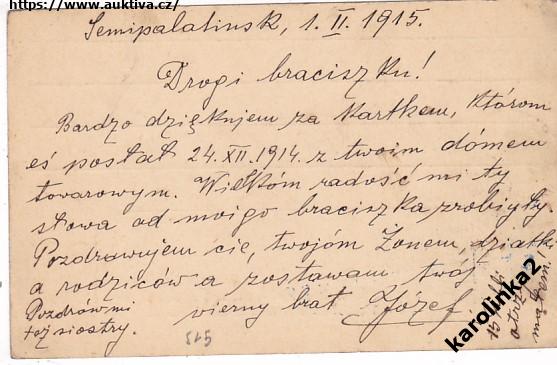 https://www.auktiva.cz/
Semipalatinsk, 1. II. 1915.
Drogi braciszku!
Bardzo dziękujem za kartkem, którom
eś postał 24.XII.1914. z twoim dómem
towarowym. Wielkóm radość mi ty
słowa od mojgo braciszka zrobiyły.
Pozdrawujem cie, twojóm Żonem, dziatki
a rodziców a zostawam twój
wierny brat Józef.
Pozdrów mi
tej siostry.
525
karolinka2